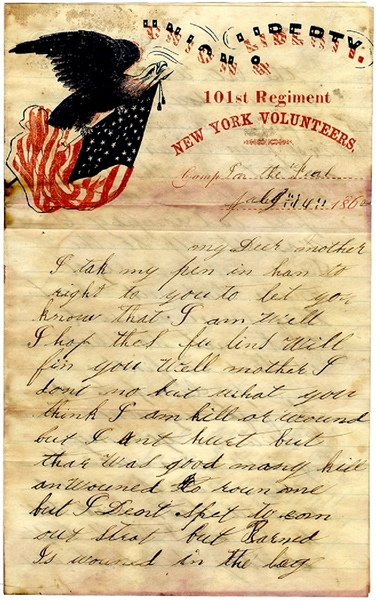 UNION & LIBERTY.
101st Regiment
NEW YORK VOLUNTEERS.
Camp For the
July 14 186
my Deer mother
I tak my pen in han to
right to you to let you
know that I am Well
I hop thes fu lins Will
fin you Well mother I
dont no but what you
think I am kill or wound
but I ant hurt but
thar Was good many kill
an wouned to roun me
but I Deont Spet to com
out strat but Barned
Is wouned in the leg